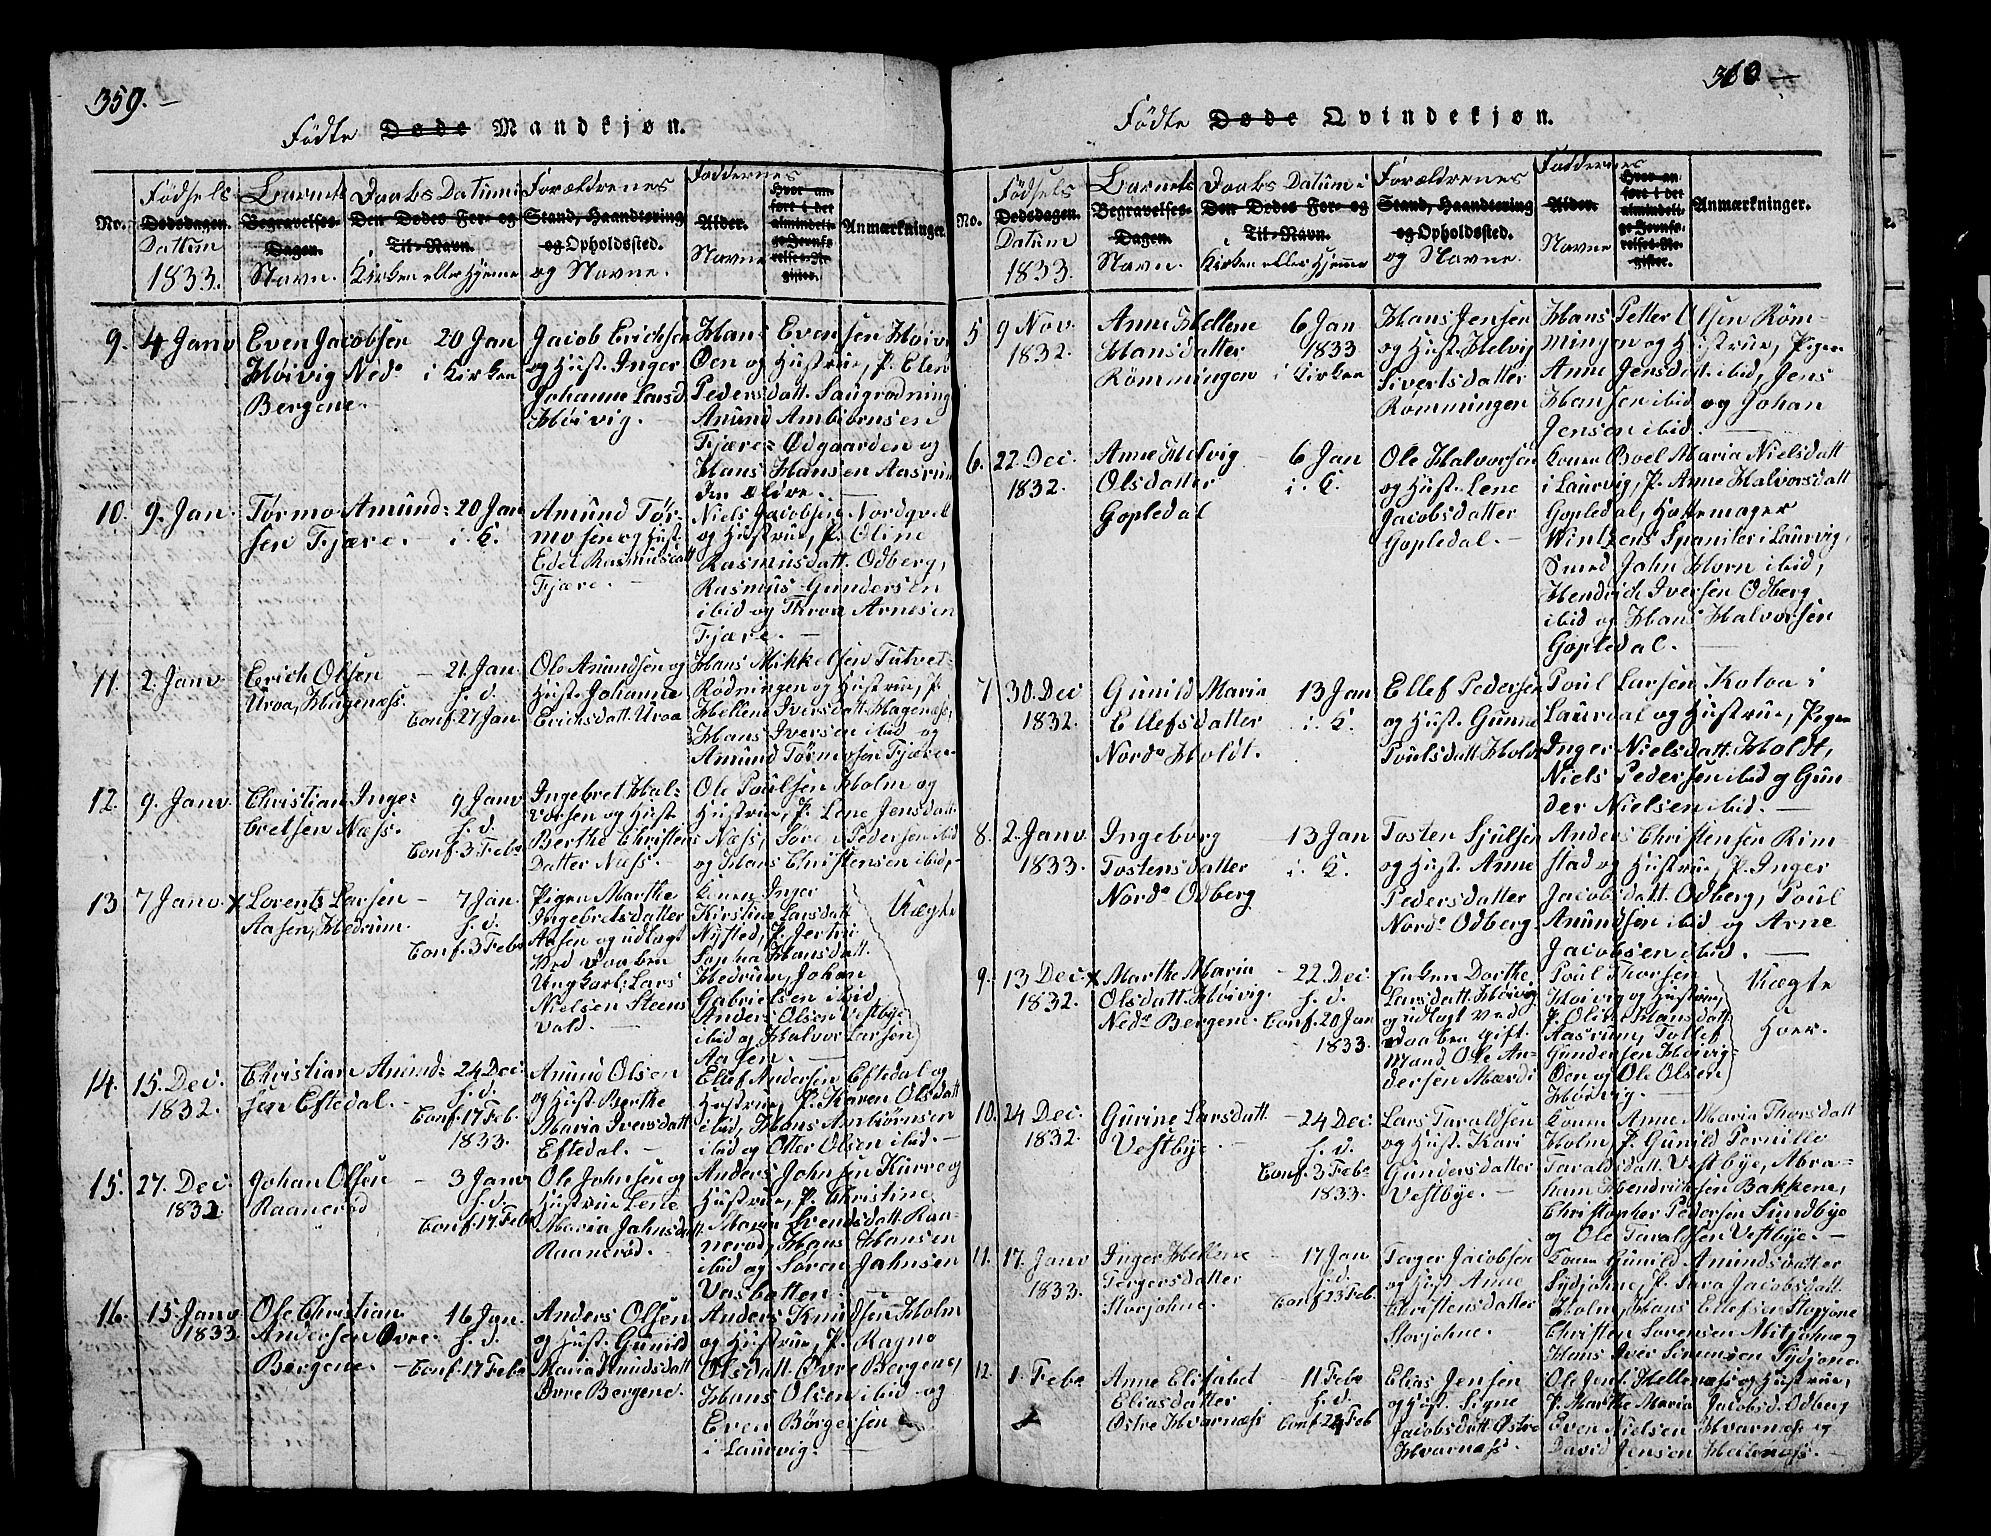 359.
Födte Døde Mandkjøn.
No.
Födsels
Dødsdagen.
Dattum
1833.
Barnets
Begravelses-
Dagen.
Navn.
Daabs Datum i
Den Dødes For- og
Til-Navn.
Kirken eller Hjemme
Forældrenes
Stand, Haandtering
og Opholdssted.
og Navne.
Faddernes
Alder.
Navne
Hvor an-
ført i det
almindeli-
ge Jevnfø-
relses-Re-
gister.
Anmærkninger.
9. 4 Janv
Even Jacobsen
Høivig Ned.
Bergene.
20 Jan
i Kirken
Jacob Erichsen
og Hust. Inger
Johanne Larsd
Høivig.
Hans Evensen Høivi
Øen og Hustrue, P. Elen
Pedersdatt. Saugrødning
Amund Ambiørnsen
Fjære, Odgaarden og
Hans Hansen Aasrum
den ældre.
10. 9. Jan
Tørmo Amund-
sen Fjære.
20 Jan
i K.
Amund Tør-
mosen og Hust.
Edel Rasmusdatt
Fjære.
Niels Jacobsen Nordqvel
og Hustrue, P. Oline
Rasmusdatt. Odberg,
Rasmus Gundersen
ibid og Throa Arnesen
Fjære.
11. 2 Janv
Erich Olsen
Uroa, Hagenæss.
21 Jan.
h. d.
Conf. 27 Jan
Ole Amundsen og
Hust. Johanne
Erichsdatt. Uroa
Hans Mikkelsen Tutvet-
Rødningen og Hustrue, P.
Hellene Iversdatt. Hagenæss,
Hans Iversen ibid og
Amund Tørmosen Fjære
12. 9. Janv.
Christian Inge-
bretsen Næss.
9 Janv
h. d.
Conf. 3 Feb.
Ingebret Hal-
vorsen og Hust.
Berthe Christens
Datter Næss.
Ole Poulsen Holm og
Hustrue, P. Lene Jensdatt.
Næss, Søren Pedersen ibid
og Hans Christensen ibid.
13. 7 Janv. x
Lorentz Larsen
Aasen, Hedrum.
7 Jan
h. d.
Conf. 3 Feb.
Pigen Marthe
Ingebretsdatter
Aasen og udlagt
ved Daaben
Ungkarl Lars
Nielsen Steens
vald.
Konen Inger
Kirstine Larsdatt
Nysted, P.
Sophia Hansdatt.
Hedrum, Johan
Gabrielsen ibid,
Anders Olsen Vestbye
ibid og Halvor Larsen
Aasen.
Uægte
14. 15. Dec.
1832.
Christian Amund-
sen Eftedal.
24 Dec.
h. d.
Conf. 17 Feb.
1833.
Amund Olsen
og Hust. Berthe
Maria Iversdatt
Eftedal.
Ellef Andersen Eftedal og
Hustrue, P. Karen Olsdatt
ibid, Hans Ambiørnsen
ibid og Otter Olsen ibid.
15. 27. Dec.
1832
Johan Olsen
Raanerød
3 Janv
h. d.
Conf. 17 Feb.
Ole Johnsen og
Hustrue Lene
Maria Jahnsdatt
Raanerød.
Anders Johnsen Kurre og
Hustrue, P. Christine
Maria Svendsdatt. Raa-
nerød, Hans Hansen
ibid og Søren Jahnsen
Vasbotten.
16. 15 Janv
1833
Ole Christian
Andersen Øvre
Bergene.
16 Jan.
h. d.
Conf. 17 Feb.
Anders Olsen
og Hust. Gunild
Maria Amundsdatt
Øvre Bergene.
Anders Knudsen Holm
og Hustrue, P. Ragne
Olsdatt. Øvre Bergene,
Hans Olsen ibid og
Even Børgersen
i Laurvig.
360
Födte Døde Qvindekjøn.
No.
Födsels
Dødsdagen.
Datum
1833.
Barnets
Begravelses-
Dagen.
Navn.
Daabs Datum i
Den Dødes For- og
Til-Navn.
Kirken eller Hjemme
Forældrenes
Stand, Haandtering
og Opholdssted.
og Navne.
Faddernes
Alder.
Navne
Hvor an-
ført i det
almindeli-
ge Jevnfø-
relses-Re-
gister.
Anmærkninger.
5 9 Nov.
1832.
Anne Hellene
Hansdatter
Rømmingen
6 Jan
1833
i Kirken
Hans Jensen
og Hust. Helvig
Sivertsdatter
Rømmingen
Hans Petter Olsen Røm-
mingen og Hustrue, Pigen
Anne Jensdatt. ibid, Jens
Hansen ibid og Johan
Jensen ibid.
6. 22. Dec.
1832.
Anne Helvig
Olsdatter
Gopledal
6 Jan
i. K.
Ole Halvorsen
og Hust. Lene
Jacobsdatter
Gopledal.
Konen Boel Maria Nielsdatt
i Laurvig, P. Anne Halvorsdatt
Gopledal, Hattemager
Wintzens Spanier i Laurvig,
Smed John Horn ibid,
Hendrich Iversen Odberg
ibid og Hans Halvorsen
Gopledal.
7 30. Dec
1832.
Gunild Maria
Ellefsdatter
Nord. Holdt.
13 Jan
i. K.
Ellef Pedersen
og Hust. Gunne
Poulsdatt. Holdt
Poul Larsen Kolva i
Laurdal og Hustrue, Pigen
Inger Nielsdatt. Holdt,
Niels Pedersen ibid og Gun-
der Nielsen ibid.
8. 2. Janv
1833.
Ingeborg
Tostensdatter
Nord. Odberg
13 Jan
i. K.
Tosten Sjulsen
og Hust. Anne
Pedersdatter
Nord. Odberg.
Anders Christensen Rim-
stad og Hustrue, P. Inger
Jacobsdatt. Odberg, Poul
Amundsen ibid og Arne
Jacobsen ibid.
9. 13 Dec x
1832.
Marthe Maria
Olsdatt. Høivig.
Ned. Bergene.
22 Dec.
h. d.
Conf. 20 Jan
1833.
Enken Dorthe
Larsdatt. Høivig
og udlagt ved
daaben gift
Mand Ole An-
dersen Mærdi
Poul Thorsen
Høivig og Hustrue,
P. Olive Hansdatt
Aasrum, Tollef
Gundersen Høivig-
Øen og Ole Olsen
Høivig.
Uægte
Hoer.
10. 24 Dec.
1832.
Gurine Larsdatt.
Vestbye.
24 Dec.
h. d.
Conf. 3 Feb.
1833.
Lars Taraldsen
og Hust. Kari
Gundersdatter
Vestbye.
Konen Anne Maria Thorsdatt
Holm, P. Gunild Pernille
Taraldsdatt. Vestbye, Abra-
ham Hendrichsen Bakkene,
Christopher Pedersen Sundbye
og Ole Taraldsen Vestbye.
11. 17. Janv
1833.
Inger Hellene
Tergersdatter
Storjohne.
17 Jan
h. d.
Conf. 23 Feb.
Terger Jacobsen
og Hust. Anne
Christensdatter
Storjohne.
Konen Gunild Amundsdatter
Sydjohne, P. Sara Jacobsdatt.
Holm, Hans Ellefsen Storjone
Christen Sørensen Mitjohne og
Hans Iver Simensen Sydjone
12. 1. Feb.
Anne Elisabet
Eliasdatter
Østre Hvarnæss
11 Feb.
h. d.
Conf. 24 Feb
Elias Jensen
og Hust. Signe
Jacobsdatt. Østre
Hvarnæss.
Ole Jens. Hellenæss og Hustrue,
P. Marthe Maria Jacobsd. Odberg
Even Nielsen Hvarnæss og
David Jensen Hellenæss.